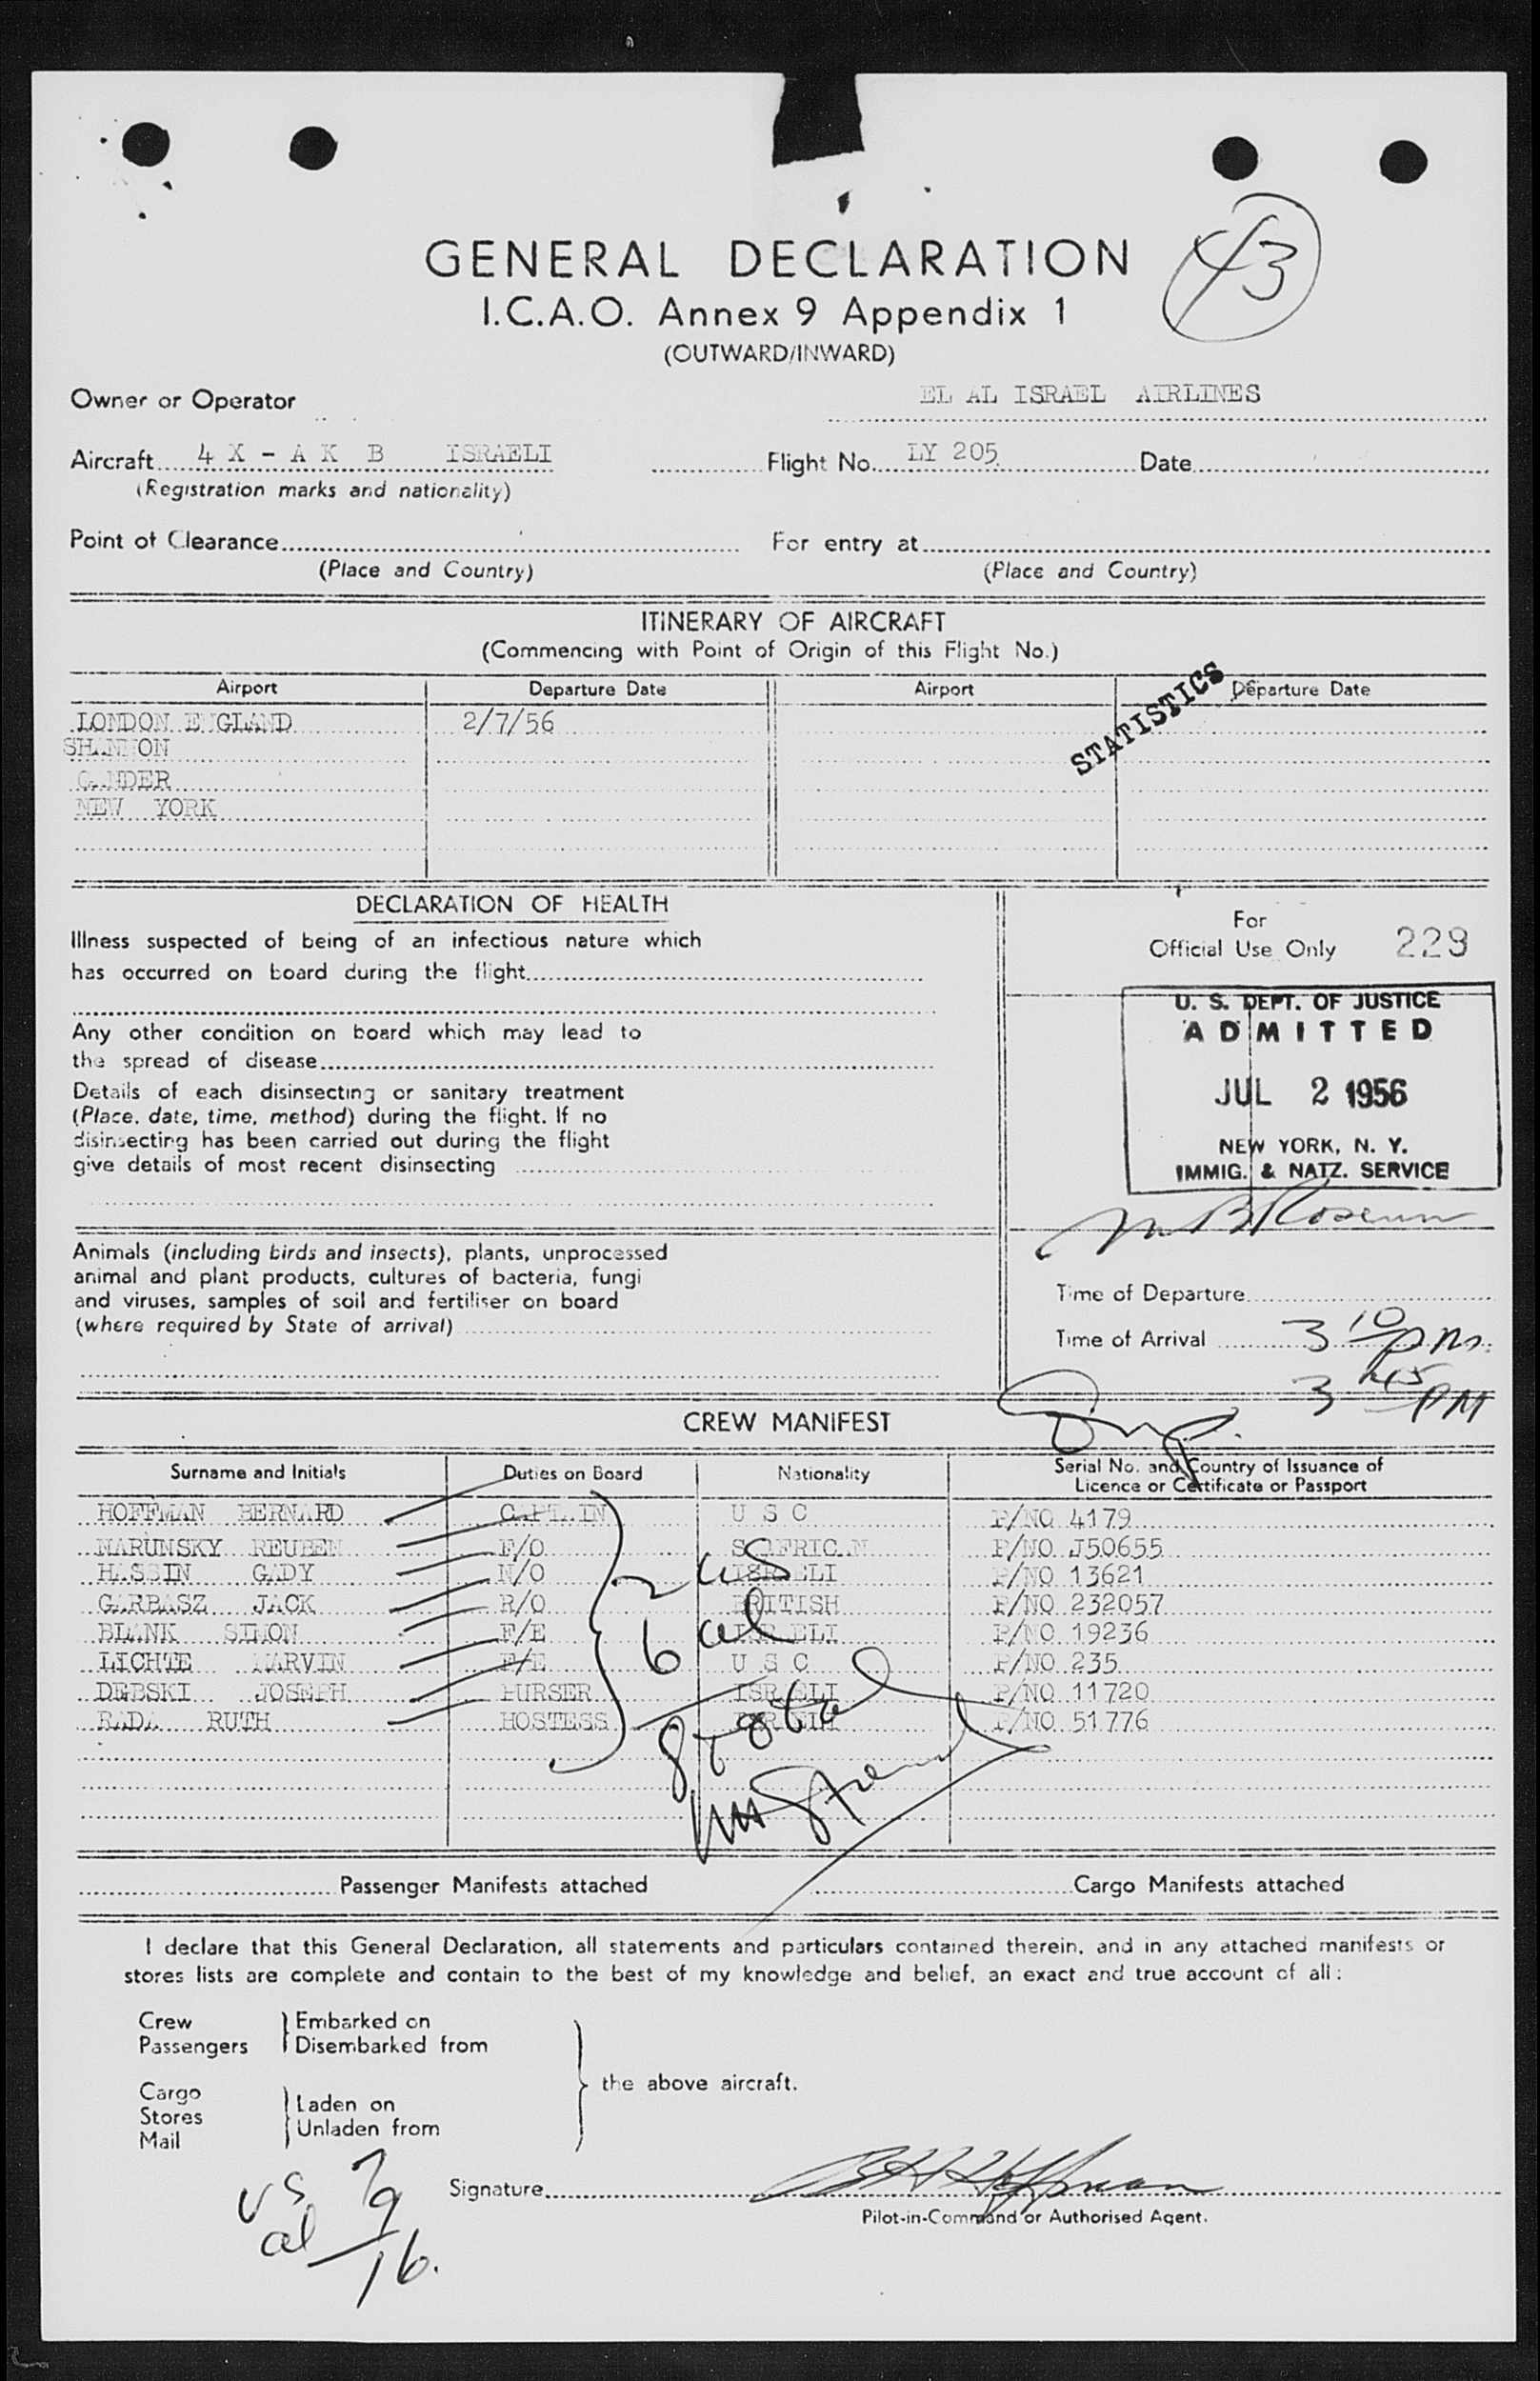 GENERAL DECLARATION
43
I.C.A.O. Annex 9 Appendix 1
(OUTWARD/INWARD)
Owner or Operator EL AL ISRAEL AIRLINES
Aircraft 4 X - A K B ISRAELI Flight No. LY 205 Date
(Registration marks and nationality)
Point of Clearance For entry at
(Place and Country) (Place and Country)
ITINERARY OF AIRCRAFT
(Commencing with Point of Origin of this Flight No.)
Airport Departure Date Airport Departure Date
STATISTICS
LONDON ENGLAND 2/7/56
SHANNON
GANDER
NEW YORK
DECLARATION OF HEALTH
Illness suspected of being of an infectious nature which
has occurred on board during the flight
Any other condition on board which may lead to
the spread of disease
Details of each disinsecting or sanitary treatment
(Place, date, time, method) during the flight. If no
disinsecting has been carried out during the flight
give details of most recent disinsecting
For
Official Use Only 229
U. S. DEPT. OF JUSTICE
ADMITTED
JUL 2 1956
NEW YORK, N. Y.
IMMIG. & NATZ. SERVICE
Animals (including birds and insects), plants, unprocessed
animal and plant products, cultures of bacteria, fungi
and viruses, samples of soil and fertiliser on board
(where required by State of arrival)
Time of Departure
Time of Arrival 3 10 pm.
3 45 PM
CREW MANIFEST
Surname and Initials Duties on Board Nationality Serial No. and Country of Issuance of Licence or Certificate or Passport
HOFFMAN BERNARD CAPTAIN U S C P/NO 4179
NARUNSKY REUBEN F/O S AFRICAN P/NO J50655
HASSIN GADY N/O ISRAELI P/NO 13621
GARBASZ JACK R/O BRITISH P/NO 232057
BLANK SIMON F/E ISRAELI P/NO 19236
LICHTE MARVIN F/E U S C P/NO 235
DEBSKI JOSEPH PURSER ISRAELI P/NO 11720
RADA RUTH HOSTESS ISRAELI P/NO 51776
2 US
6 al
8 total
Passenger Manifests attached Cargo Manifests attached
I declare that this General Declaration, all statements and particulars contained therein, and in any attached manifests or
stores lists are complete and contain to the best of my knowledge and belief, an exact and true account of all:
Crew Embarked on
Passengers Disembarked from
the above aircraft.
Cargo Laden on
Stores Unladen from
Mail
US 7
al 9
16.
Signature B H Hoffman
Pilot-in-Command or Authorised Agent.